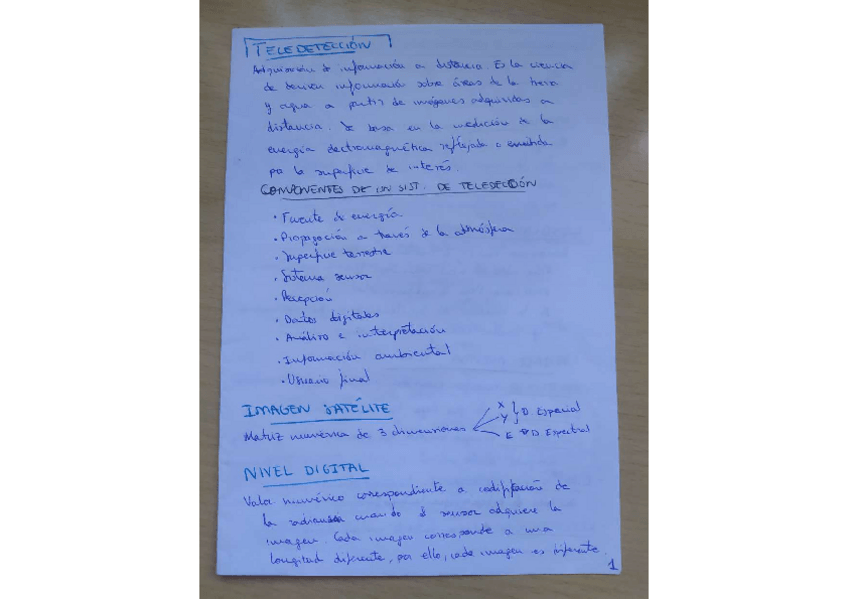 TELEDETECCIÓN
Adquisición de información a distancia. Es la ciencia
de obtener información sobre áreas de la tierra
y agua a partir de imágenes adquiridas a
distancia. Se basa en la medición de la
energía electromagnética reflejada o emitida
por la superficie de interés.
COMPONENTES DE UN SIST. DE TELEDECCIÓN
· Fuente de energía
· Propagación a través de la atmósfera
· Superficie terrestre
· Sistema sensor
· Recepción
· Datos digitales
· Análisis e interpretación
· Información ambiental
· Usuario final
IMAGEN SATÉLITE
Matriz numérica de 3 dimensiones X Y } D Espacial
E D Espectral
NIVEL DIGITAL
Valor numérico correspondiente a codificación de
la radiancia cuando el sensor adquiere la
imagen. Cada imagen corresponde a una
longitud diferente, por ello, cada imagen es diferente.
1